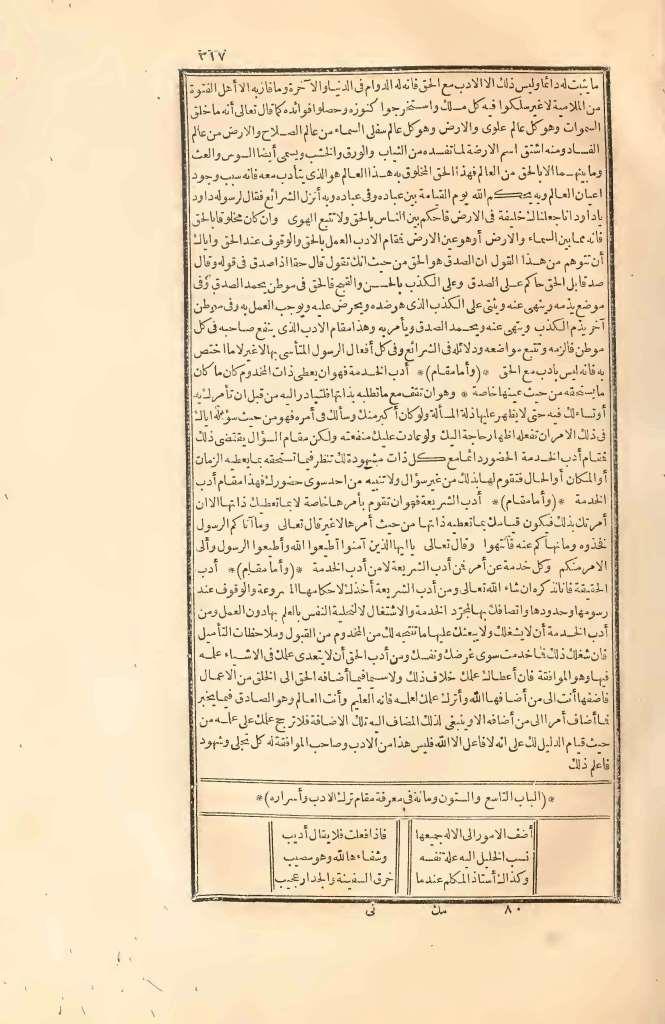 ٣١٧
ما يثبت له دائما وليس ذلك الا الادب مع الحق فانه له الدوام فى الدنيا والآخرة وما فاز به الا أهل الفتوة
من الملامية لا غير سلكوا فيه كل مسلك واستخرجوا كنوزه وحصلوا فوائده كما قال تعالى أنه ما خلق
السموات وهو كل عالم علوى والارض وهو كل عالم سفلى السماء من عالم الصلاح والارض من عالم
الفساد ومنه اشتق اسم الارضة لما تفسده من الثياب والورق والخشب ويسمى أيضا السوس والعث
وما بينهما الا بالحق من العالم فهذا الحق المخلوق به هذا العالم هو الذى يتأدب معه فانه سبب وجود
اعيان العالم وبه يحكم الله يوم القيامة بين عباده وفى عباده وبه أنزل الشرائع فقال لرسوله داود
يا داود انا جعلناك خليفة فى الارض فاحكم بين الناس بالحق ولا تتبع الهوى وان كان مخلوقا بالحق
فانه مما بين السماء والارض أو هو عين الارض فمقام الادب العمل بالحق والوقوف عند الحق واياك
أن تتوهم من هذا القول ان الصدق هو الحق من حيث انك تقول قال حقا اذا صدق فى قوله وقال
صدقا بل الحق حاكم على الصدق وعلى الكذب بالحسن والقبح فالحق فى موطن يحمد الصدق وفى
موضع يذمه وينهى عنه ويثنى على الكذب الذى هو ضده ويحرض عليه ويوجب العمل به وفى موطن
آخر يذم الكذب وينهى عنه ويحمد الصدق ويأمر به وهذا مقام الادب الذى ينتفع صاحبه فى كل
موطن فالزمه وتتبع مواضعه ودلائله فى الشرائع وفى كل أفعال الرسول المتأسى بها لا غير لا ما اختص
به فانه ليس بادب مع الحق *(وأما مقام)* أدب الخدمة فهو ان يعطى ذات المخدوم كان ما كان
ما يستحقه من حيث عينها خاصة * وهو ان تقف مع ما تطلبه بذاتها فتبادر اليه من قبل ان تأمرك به
أو تسألك فيه حتى لا يظهر عليها ذلة المسألة ولو كان أكبر منك وسألك فى أمره فهو من حيث سؤاله اياك
فى ذلك الامر ان تفعله اظهار حاجة اليك ولو عادت عليك منفعته ولكن مقام السؤال يقتضى ذلك
فمقام أدب الخدمة الحضور دائما مع كل ذات مشهودة لك تنظر فيما تستحقه بما يعطيه الزمان
أو المكان أو الحال فتقوم لها بذلك من غير سؤال ولا تنبيه من احد سوى حضورك فهذا مقام أدب
الخدمة *(وأما مقام)* أدب الشريعة فهو ان تقوم بأمرها خاصة لا بما تعطيك ذاتها الا ان
أمرتك بذلك فيكون قيامك بما تعطيه ذاتها من حيث أمرها لا غير قال تعالى وما آتاكم الرسول
فخذوه وما نهاكم عنه فانتهوا وقال تعالى يا ايها الذين آمنوا أطيعوا الله وأطيعوا الرسول وأولى
الامر منكم وكل خدمة عن أمر فمن أدب الشريعة لا من أدب الخدمة *(وأما مقام)* أدب
الحقيقة فانا نذكره ان شاء الله تعالى ومن أدب الشريعة أخذك لاحكامها المشروعة والوقوف عند
رسومها وحدودها واتصافك بها لمجرد الخدمة والاشتغال لا لتحلية النفس بالعلم بها دون العمل ومن
أدب الخدمة أن لا يشغلك ولا يبعثك عليها ما تنتجه لك من المخدوم من القبول وملاحظات التأميل
فان شغلك ذلك فما خدمت سوى غرضك ونفسك ومن أدب الحق أن لا يتعدى علمك فى الاشياء علمه
فيها وهو الموافقة فان أعطاك علمك خلاف ذلك ولا سيما فيما أضافه الحق الى الخلق من الاعمال
فاضفها أنت الى من أضافها الله وأترك علمك لعلمه فانه العليم وأنت العالم وهو الصادق فيما يخبر
فما أضاف أمرا الى من أضافه الا وينبغى لذلك المضاف اليه تلك الاضافة فلا ترجح علمك على علمه من
حيث قيام الدليل لك على انه لا فاعل الا الله فليس هذا من الادب وصاحب الموافقة له كل تجلى وشهود
فاعلم ذلك
*(الباب التاسع والستون ومائة فى معرفة مقام ترك الادب وأسراره)*
أضف الامور الى الاله جميعها فاذا فعلت فلا يقال أديب
نسب الخليل اليه علة نفسه وشفاءها لله وهو مصيب
وكذاك أستاذ المكلم عندما خرق السفينة والجدار عجيب
٨٠ مك نى